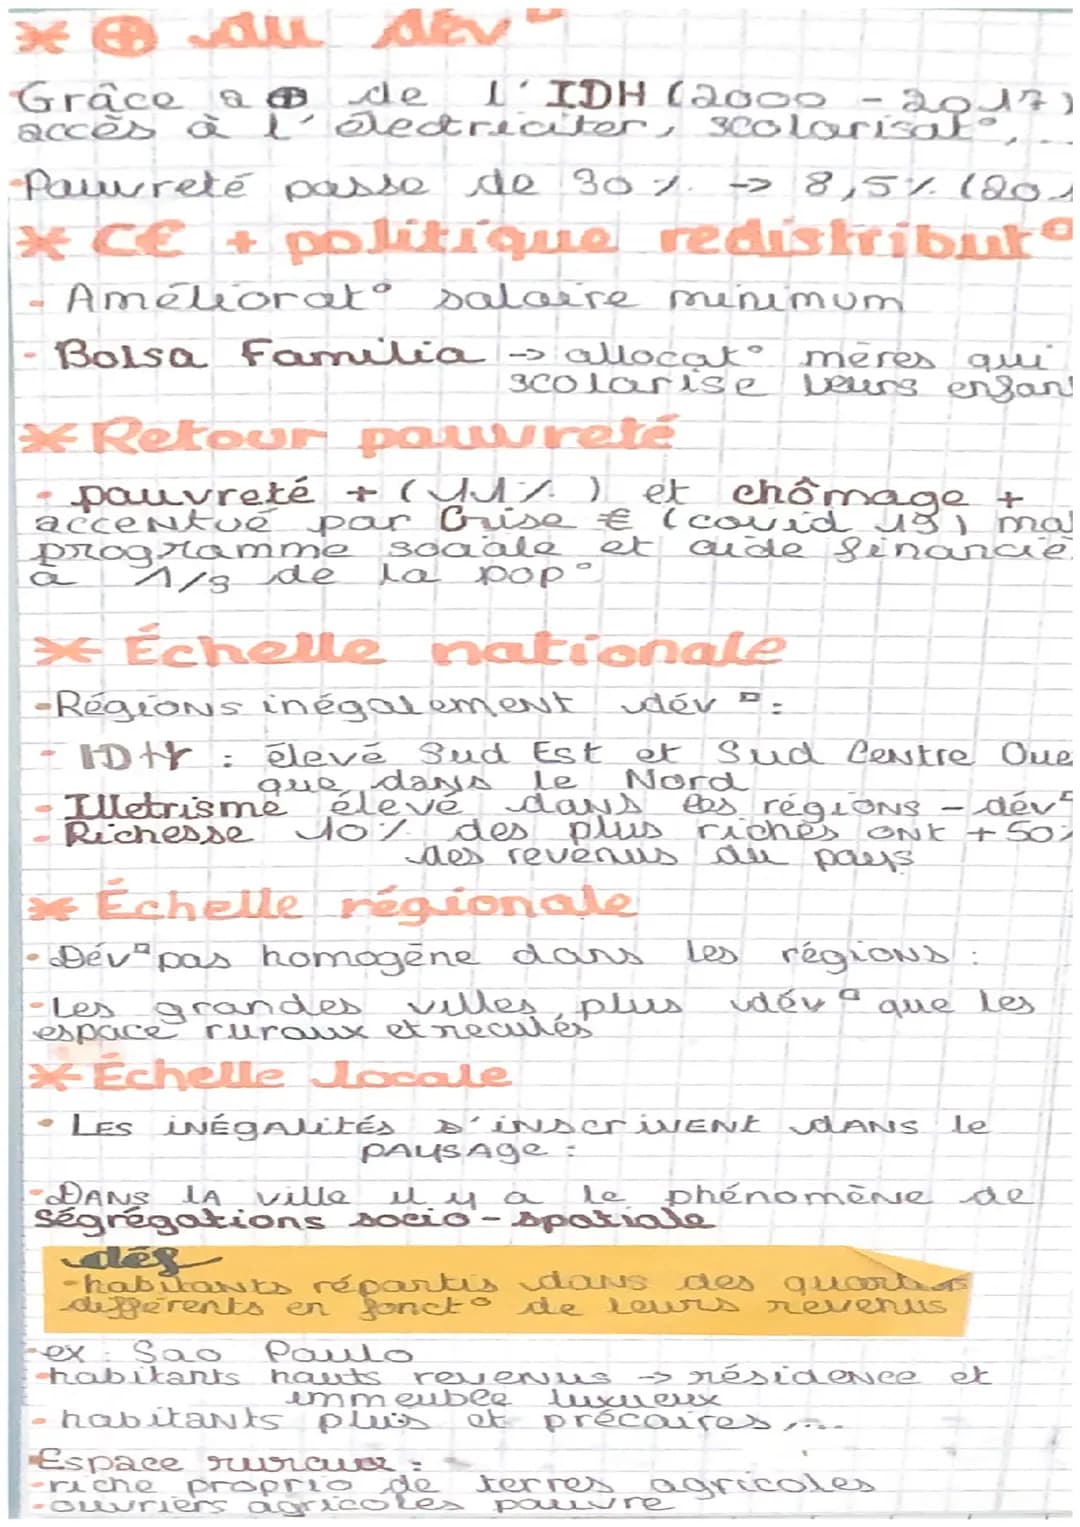 * ⊕ du dév□
Grâce a ⊕ de l'IDH (2000 - 2017)
accès à l'électriciter, scolarisat°, ...
-Pauvreté passe de 30% -> 8,5% (20
* C€ + politique redistribut°
- Améliorat° salaire minimum
- Bolsa Familia -> allocat° mères qui
scolarise leurs enfant
* Retour pauvreté
• pauvreté + (11%) et chômage +
accentué par Crise € (covid 19) ma
programme sociale et aide financiè
a 1/3 de la pop°
* Échelle nationale
-Régions inégalement dév□ :
- IDH : élevé Sud Est et Sud Centre Oue
que dans le Nord
- Illetrisme élevé dans les régions - dév□
- Richesse 10% des plus riches ont + 50%
des revenus du pays
* Échelle régionale
• Dév□ pas homogène dans les régions :
-Les grandes villes plus dév□ que les
espace ruraux et reculés
* Échelle locale
• LES INÉGALITÉS s'inscrivent dans le
PAYSAGE :
-DANS LA ville il y a le phénomène de
ségrégations socio-spatiale
déf
-habitants répartis dans des quartiers
différents en fonct° de leurs revenus
-ex : Sao Paulo
-habitants hauts revenus -> résidence et
immeuble luxueux
- habitants plus et précaires,...
-Espace ruraux :
-riche proprio de terres agricoles
-ouvriers agricoles pauvre